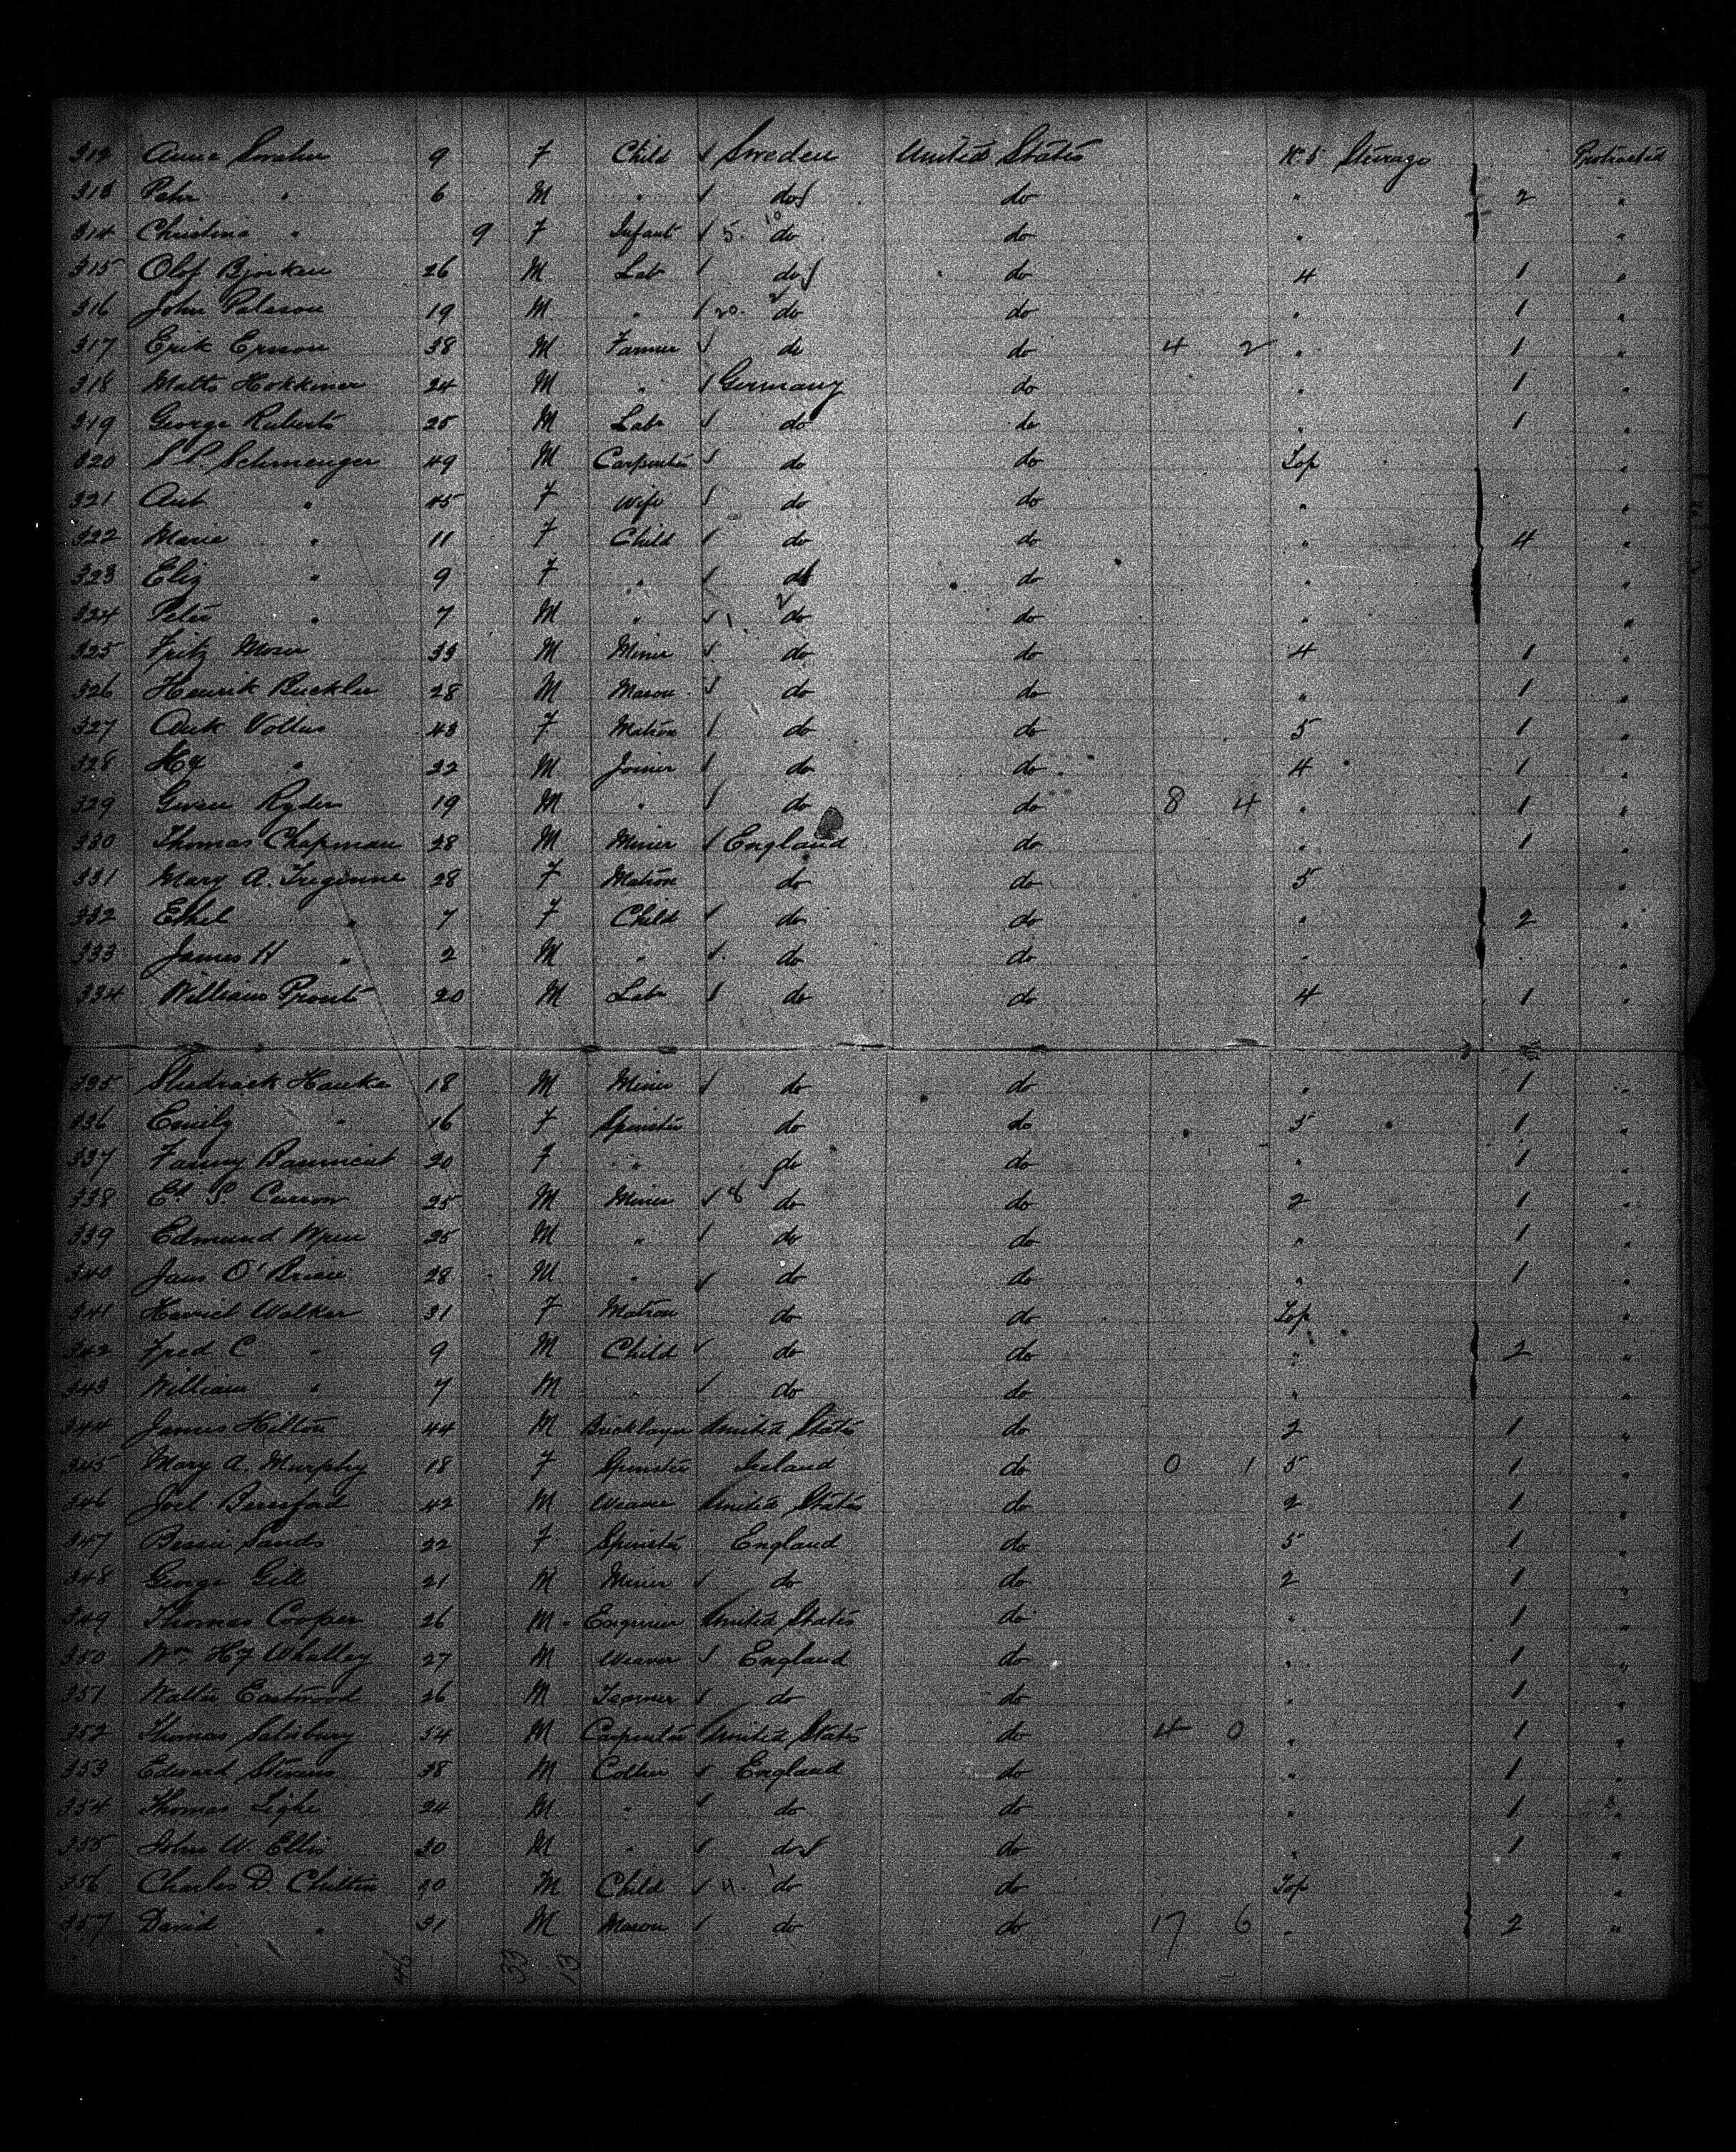 312 Anna 9 F Child Sweden United States No. 5 Steerage Protracted
313 Pehr " 6 M " do do " 2 "
314 Christina " 9 F Infant 5. 10 do do " "
315 Olof Bjorken 26 M Lab do do 4 1 "
316 John Palsson 19 M " 20. do do " 1 "
317 Erik Ersson 38 M Farmer do do 4 2 " 1 "
318 Matts 24 M " Germany do " 1 "
319 George Roberts 25 M Lab do do " 1 "
320 Schmenger 49 M Carpenter do do Top "
321 " 45 F Wife do do " "
322 Marie " 11 F Child do do " 4 "
323 Eliz " 9 F " do do " "
324 Peter " 7 M " 1. do do " "
325 Fritz Moser 33 M Miner do do 4 1 "
326 Henrik Buckler 28 M Mason do do " 1 "
327 43 F Matron do do 5 1 "
328 Hy " 22 M Joiner do do 4 1 "
329 Ryder 19 M " do do 8 4 " 1 "
330 Thomas Chapman 28 M Miner England do " 1 "
331 Mary A. Treginne 28 F Matron do do 5 "
332 Ethel " 7 F Child do do " 2 "
333 James H " 2 M " do do " "
334 William 20 M Lab do do 4 1 "
335 18 M Miner do do " 1 "
336 Emily " 16 F Spinster do do 5 1 "
337 Fanny 20 F " do do " 1 "
338 Ed S. 25 M Miner 8 do do 2 1 "
339 Edmund Wren 25 M " do do " 1 "
340 Jams O'Brien 28 M " do do " 1 "
341 Walker 31 F Matron do do Top "
342 Fred C " 9 M Child do do " 2 "
343 William " 7 M " do do " "
344 James Hilton 44 M Bricklayer United States do 2 1 "
345 Mary A. Murphy 18 F Spinster Ireland do 0 1 5 1 "
346 Joel Beresford 42 M Weaver United States do 2 1 "
347 Bessie Sands 22 F Spinster England do 5 1 "
348 George Gill 21 M Miner do do 2 1 "
349 Thomas Cooper 26 M Engineer United States do " 1 "
350 Wm. Hy Whalley 27 M Weaver England do " 1 "
351 Walter Eastwood 26 M do do " 1 "
352 Thomas Salsbury 34 M Carpenter United States do 4 0 " 1 "
353 Edward Stevens 38 M Collier England do " 1 "
354 Thomas 24 M " do do " 1 "
355 John W. Ellis 30 M " do do " 1 "
356 Charles D. Chilton 10 M Child 11. do do Top "
357 David " 31 M Mason do do 17 6 " 2 "
46 33 13